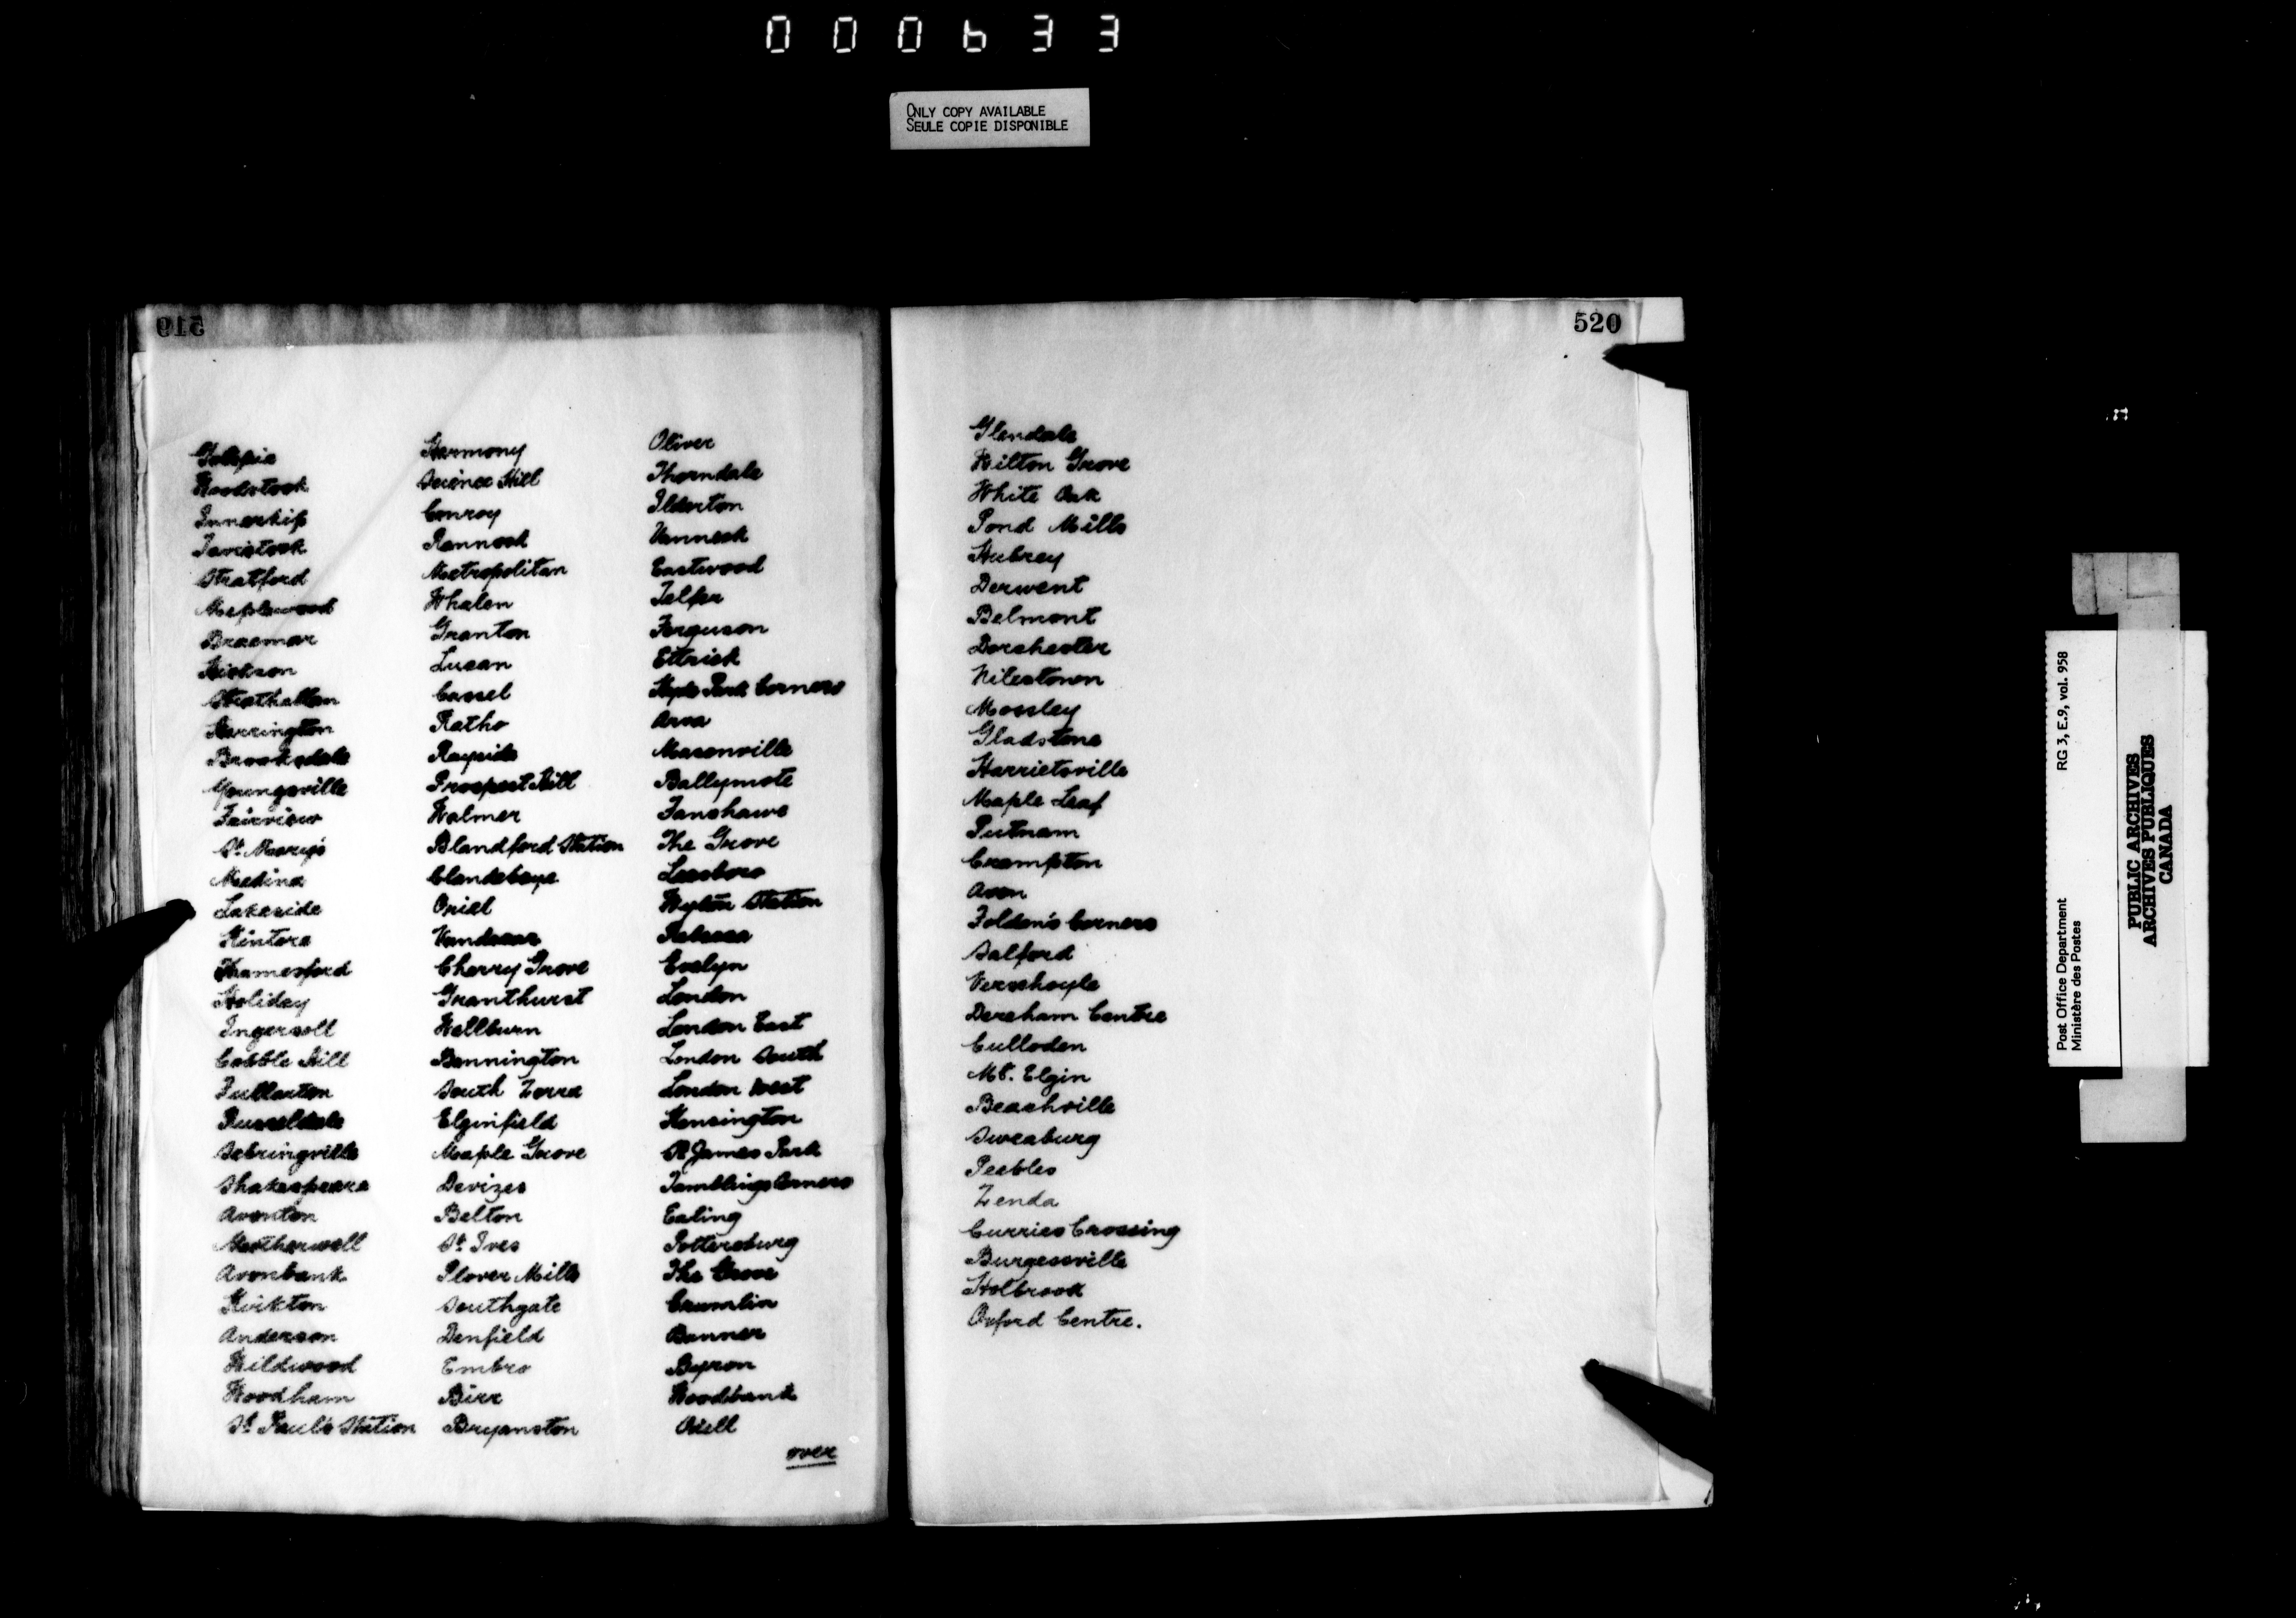 000633
ONLY COPY AVAILABLE
SEULE COPIE DISPONIBLE
519
Golspie
Woodstock
Innerkip
Tavistock
Stratford
Maplewood
Braemar
Hickson
Strathallan
Harrington
Brooksdale
Youngsville
Fairview
St. Mary's
Medina
Lakeside
Kintore
Thamesford
Holiday
Ingersoll
Cobble Hill
Fullarton
Russeldale
Sebringville
Shakespeare
Avonton
Motherwell
Avonbank
Kirkton
Anderson
Wildwood
Woodham
St. Paul's Station
Harmony
Science Hill
Conroy
Rannoch
Metropolitan
Whalen
Granton
Lucan
Cassel
Ratho
Rayside
Prospect Hill
Walmer
Blandford Station
Clandeboye
Oriel
Vandecar
Cherry Grove
Granthurst
Wellburn
Bennington
South Zorra
Elginfield
Maple Grove
Devizes
Belton
St. Ives
Plover Mills
Southgate
Denfield
Embro
Birr
Bryanston
Oliver
Thorndale
Ilderton
Vanneck
Eastwood
Telfer
Ferguson
Ettrick
Hyde Park Corners
Arva
Masonville
Ballymote
Fanshawe
The Grove
Leesboro
Wyton Station
Rebecca
Evelyn
London
London East
London South
London West
Kensington
St James Park
Tamblings Corners
Ealing
Pottersburg
The Grove
Crumlin
Banner
Byron
Woodbank
Odell
over
520
Glendale
Wilton Grove
White Oak
Pond Mills
Hubrey
Derwent
Belmont
Dorchester
Nilestown
Mossley
Gladstone
Harrietsville
Maple Leaf
Putnam
Crampton
Avon
Folden's Corners
Salford
Verschoyle
Dereham Centre
Culloden
Mt. Elgin
Beachville
Sweaburg
Peebles
Zenda
Curries Crossing
Burgessville
Holbrook
Oxford Centre.
Post Office Department RG 3, E.9, vol. 958
Ministère des Postes
PUBLIC ARCHIVES
ARCHIVES PUBLIQUES
CANADA